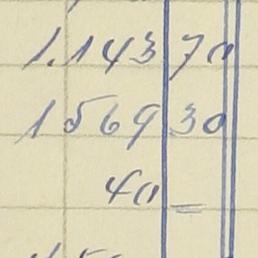 1.143 70
1569 30
40 —